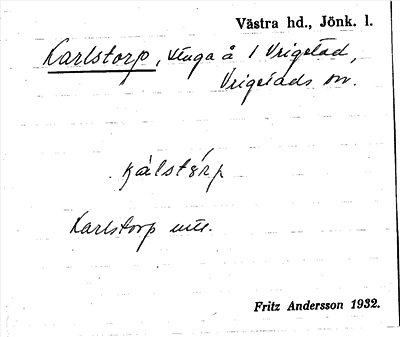 Västra hd., Jönk. l.
Karlstorp, stuga å 1 Vrigstad,
Vrigstads sn.
kálstórp
Karlstorp
Fritz Andersson 1932.